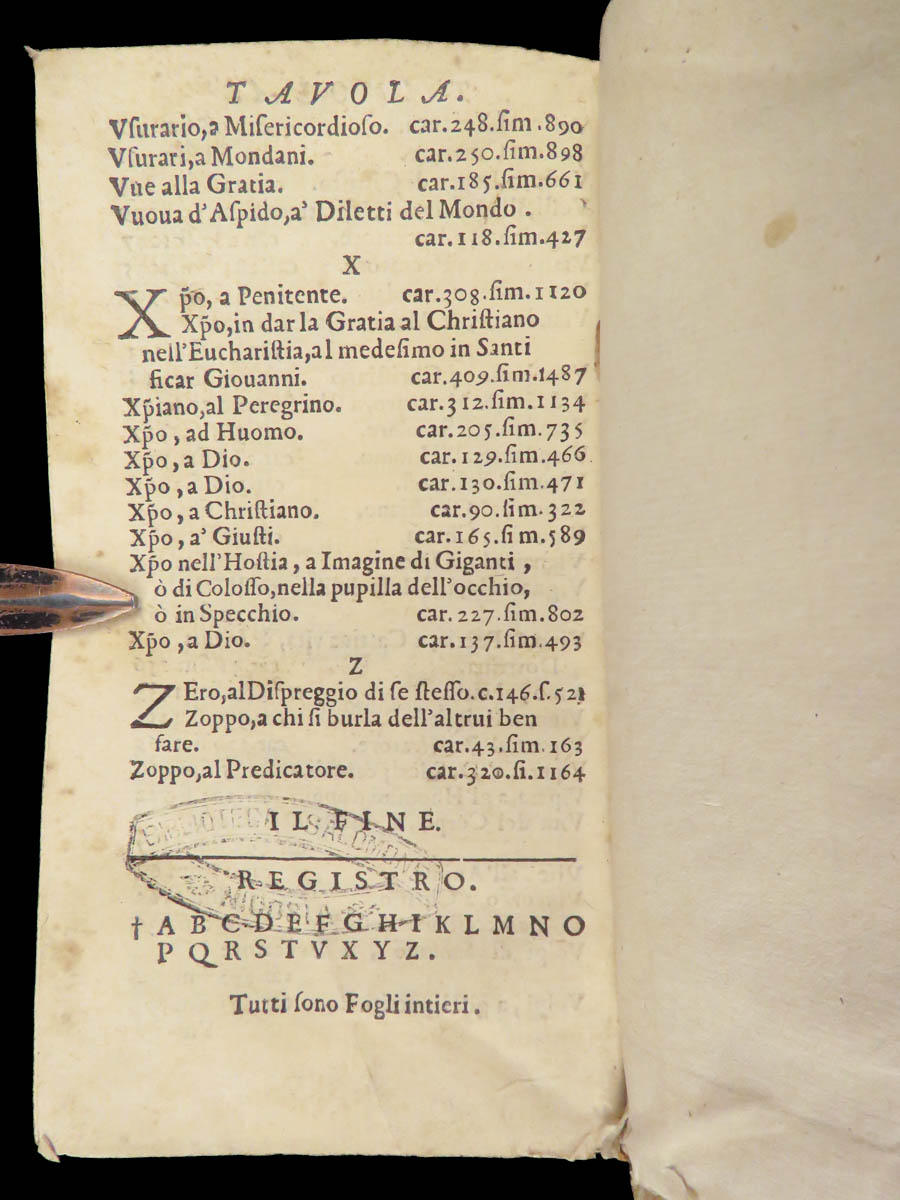 TAVOLA.
Vſurario,a Miſericordioſo. car.248.ſim.890
Vſurari,a Mondani. car.250.ſim.898
Vue alla Gratia. car.185.ſim.661
Vuoua d'Aſpido,a' Diletti del Mondo.
car.118.ſim.427
X
Xp̃o, a Penitente. car.308.ſim.1120
Xp̃o,in dar la Gratia al Chriſtiano
nell'Euchariſtia,al medeſimo in Santi
ficar Giouanni. car.409.ſim.1487
Xp̃iano,al Peregrino. car.312.ſim.1134
Xp̃o, ad Huomo. car.205.ſim.735
Xp̃o, a Dio. car.129.ſim.466
Xp̃o, a Dio. car.130.ſim.471
Xp̃o, a Chriſtiano. car.90.ſim.322
Xp̃o, a' Giuſti. car.165.ſi m.589
Xp̃o nell'Hoſtia, a Imagine di Giganti,
ò di Coloſſo,nella pupilla dell'occhio,
ò in Specchio. car.227.ſim.802
Xp̃o, a Dio. car.137.ſim.493
Z
ZEro,al Diſpreggio di ſe ſteſſo.c.146.ſ.521
Zoppo,a chi ſi burla dell'altrui ben
fare. car.43.ſim.163
Zoppo,al Predicatore. car.320.ſi.1164
IL FINE.
BIBLIOTECA SALOMONE
NICOSIA
REGISTRO.
† A B C D E F G H I K L M N O
P Q R S T V X Y Z.
Tutti ſono Fogli intieri.